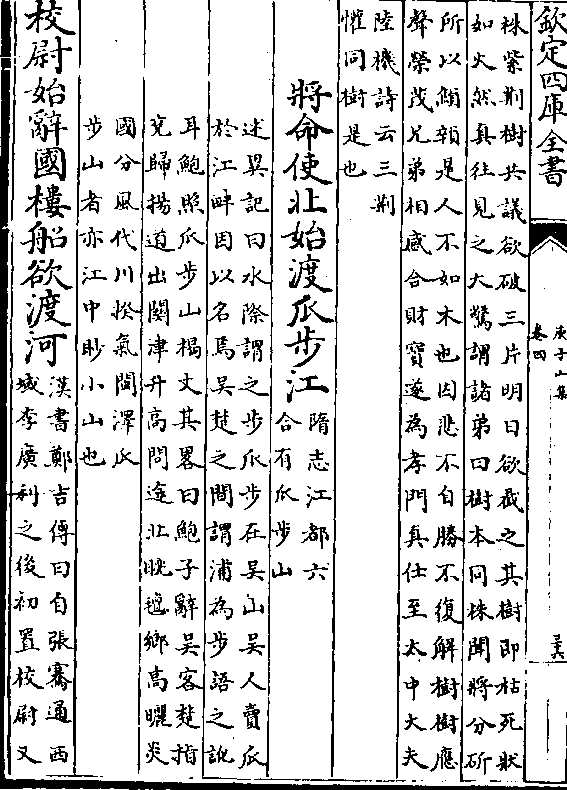 欽定四庫全書
庾子山集
卷四
株紫荆樹共議欲破三片明日欲截之其樹即枯死狀
如火然真往見之大驚謂諸弟曰樹本同株聞將分斫
所以顦顇是人不如木也因悲不自勝不復解樹樹應
聲榮茂兄弟相感合財寶遂為孝門真仕至太中大夫
陸機詩云三荆
懽同樹是也
將命使北始渡瓜步江
隋志江都六
合有瓜步山
述異記曰水際謂之步瓜步在吳山吳人賣瓜
於江畔因以名焉吳楚之間謂浦為步語之訛
耳鮑照瓜步山楬文其畧曰鮑子辭吳客楚指
兗歸揚道出關津升高問途北眺氊鄉南曬炎
國分風代川揆氣閩澤瓜
步山者亦江中眇小山也
校尉始辭國樓船欲渡河
漢書鄭吉傳曰自張騫通西
域李廣利之後初置校尉又